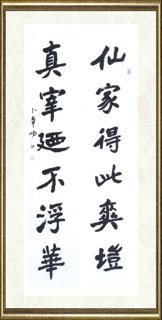 仙家得此爽塏
真宰廼不浮華